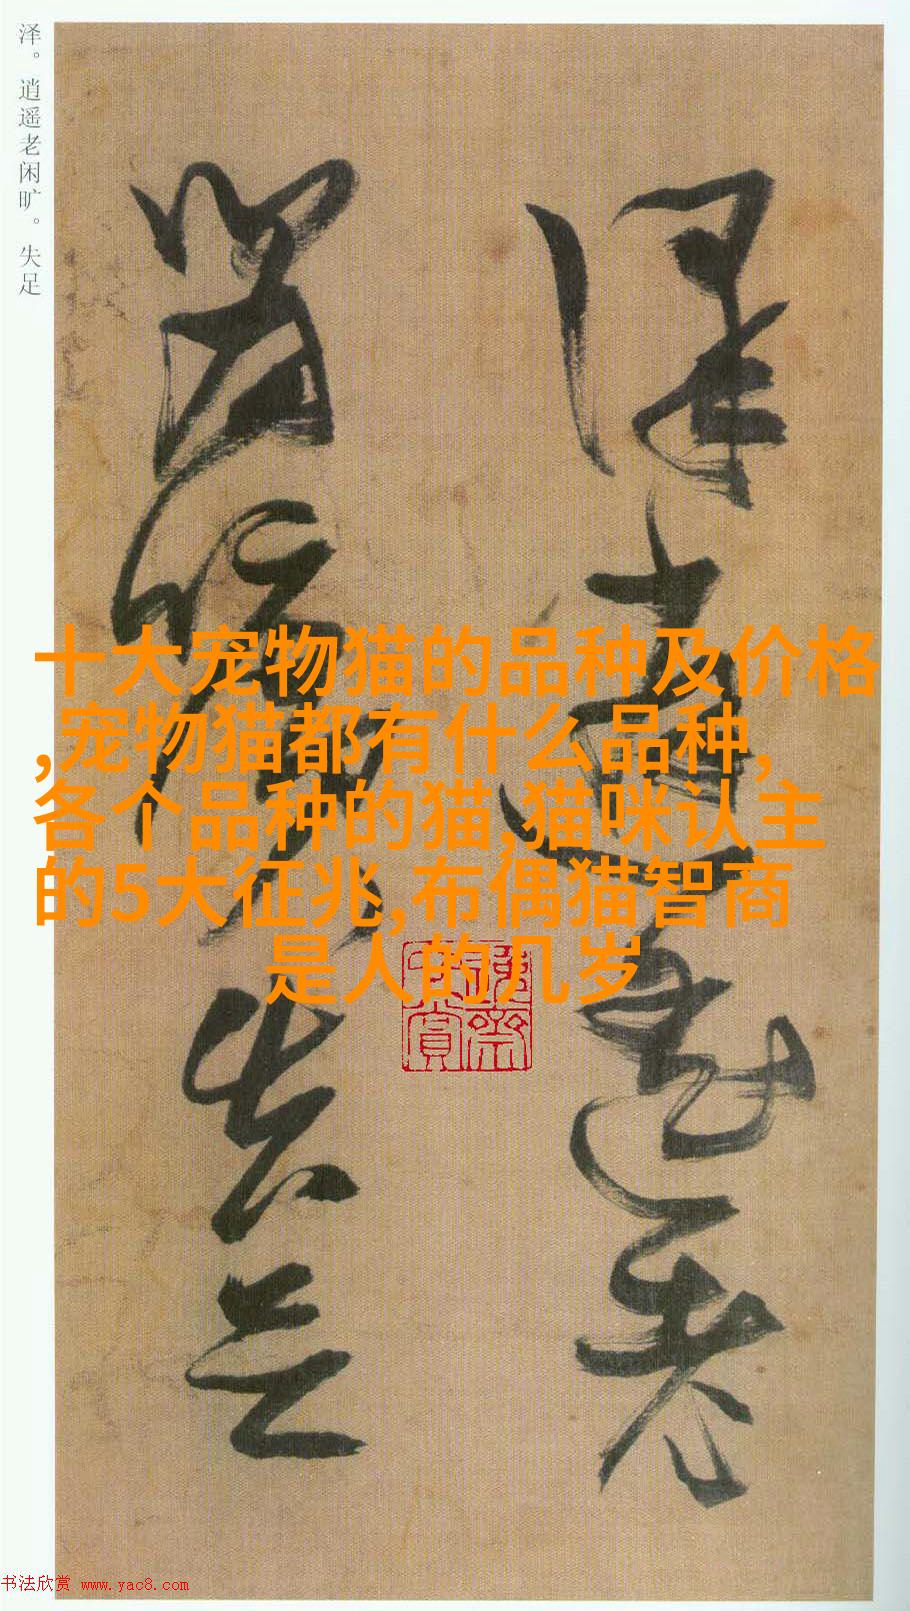 泽。逍遥老闲旷。失足
泽逍遥老
闲旷失足
十大宠物猫的品种及价格
,宠物猫都有什么品种,
各个品种的猫,猫咪认主
的5大征兆,布偶猫智商
是人的几岁
书法欣赏 www.yac8.com